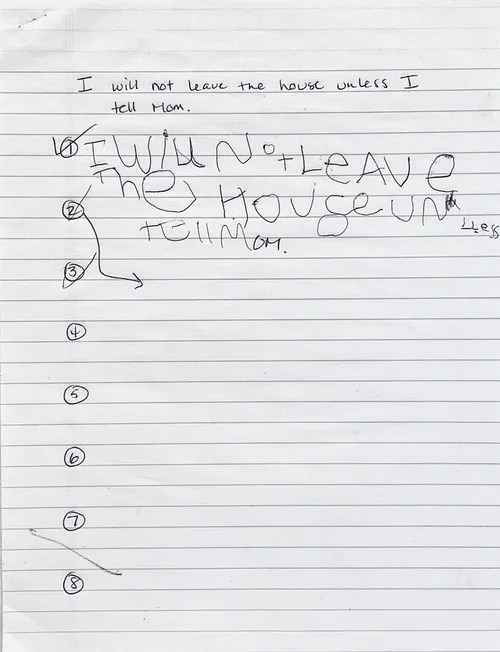 I will not leave the house unless I
tell Mom.
① I Will Not LEAVE
② The House UN
LLess
tell MOM.
③
④
⑤
⑥
⑦
⑧